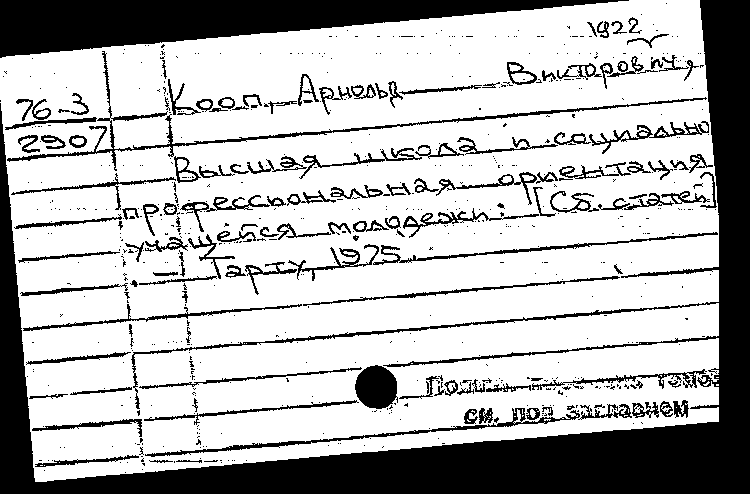 1922
76-3 Кооп, Арнольд Викторович,
2907
Высшая школа и социально
профессиональная ориентация
учащейся молодежи: [Сб. статей]
. — Тарту, 1975.
см. под заглавием